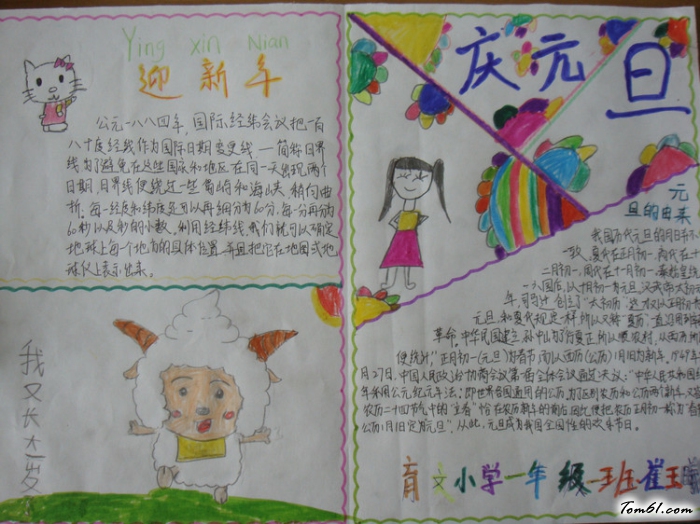 Ying xin Nian
迎新年
公元一八八四年，国际经纬会议把一百
八十度经线作为国际日期变更线——简称日界
线。为了避免在这些国家和地区在同一天出现两个
日期，日界线便绕过一些岛屿和海峡，稍向曲
折。每一经度和纬度还可以再细分为60分，每一分再分为
60秒以及秒的小数。利用经纬线，我们就可以确定
地球上每一个地方的具体位置，并且把它在地图或地
球仪上表示出来。
我又长大一岁了
庆元旦
元
旦的由来
我国历代元旦的月日并不
一致。夏代在正月初一，商代在十
二月初一，周代在十一月初一，秦始皇统
一六国后，以十月初一为元旦，汉武帝太初元
年，司马迁创立了"太初历"，这才又以正月初一
元旦，和夏代规定一样，所以又称"夏历"，一直沿用到
革命。中华民国建立，孙中山为了行夏正，所以顺农时，从西历，所
便统计，"正月初一(元旦)为春节，而以西历(公历)1月1日为新年。1949年
月27日，中国人民政治协商会议第一届全体会议通过决议："中华人民共和国
年采用公元纪元年法，即世界各国通用的公历，为了区别农历和公历两个新年，又
农历二十四节气中的"立春"恰在农历新年的前后，因此便把农历正月初一称为"春
公历1月1日定为"元旦"。从此，元旦成为我国全国性的欢乐节日。
育文小学一年级一班崔玉
Tom61.com